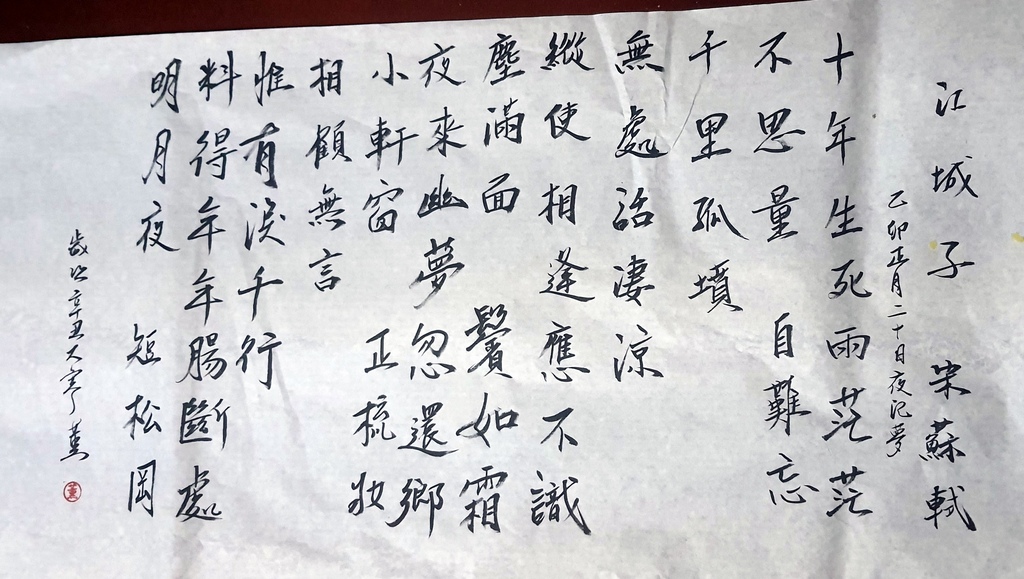 江城子 宋蘇軾
乙卯正月二十日夜记夢
十年生死兩茫茫
不思量 自難忘
千里孤墳
無處話淒涼
縱使相逢應不識
塵滿面 鬢如霜
夜來幽夢忽還鄉
小軒窗 正梳妝
相顧無言
惟有淚千行
料得年年腸斷處
明月夜 短松岡
歲次辛丑大寒 董
董